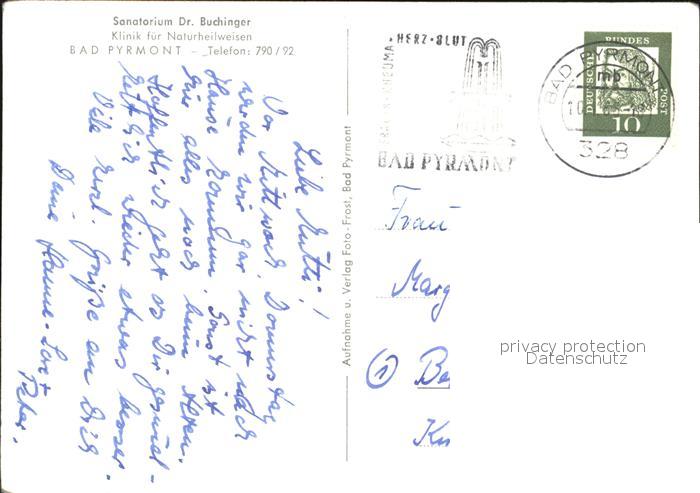 Sanatorium Dr. Buchinger
Klinik für Naturheilweisen
BAD PYRMONT – Telefon: 790/92
Liebe Mutti!
Vor Mittwoch, Donnerstag
werden wir gar nicht nach
Hause kommen. Sonst ist
hier alles noch beim Alten.
Hoffentlich geht es Dir gesund-
heitlich wieder etwas besser.
Viele herzl. Grüße an Dich
Deine Hanne-Lore +
Peter.
Aufnahme u. Verlag Foto-Frost, Bad Pyrmont
HERZ·BLUT
RHEUMA
BAD PYRMONT
BAD PYRMONT
mb
328
DEUTSCHE
BUNDES
POST
10
Frau
Marg
1 Be
Kn
privacy protection
Datenschutz